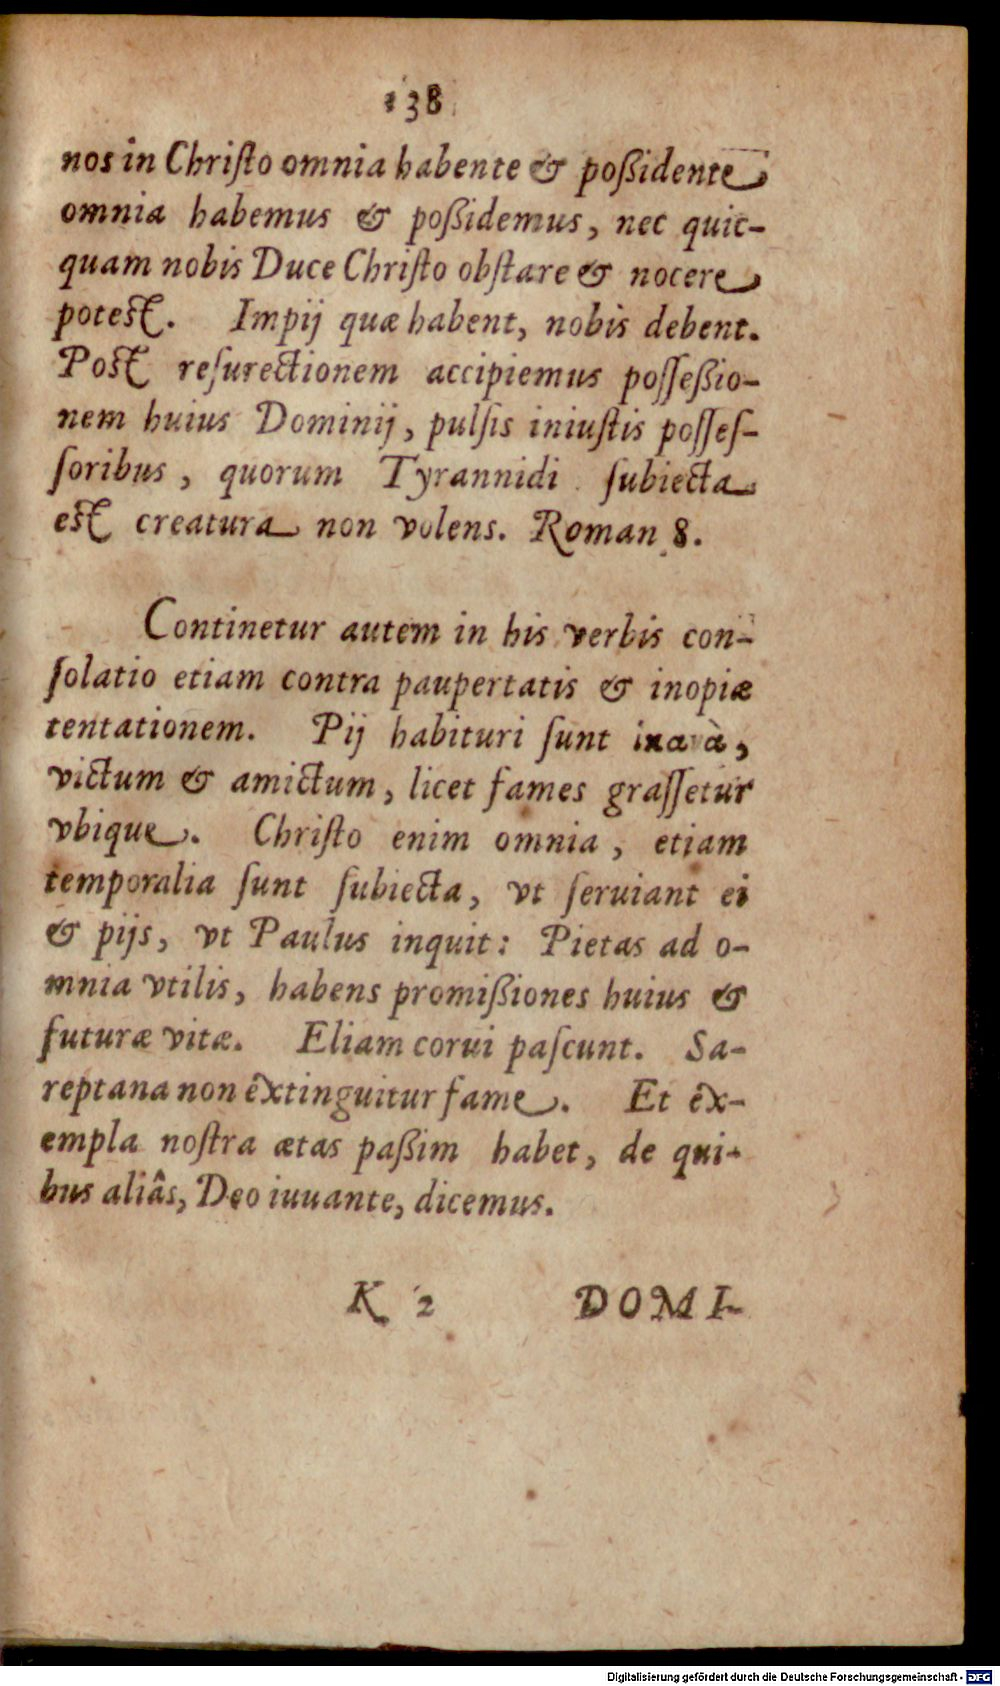 138
nos in Chriſto omnia habente & poßidente
omnia habemus & poßidemus, nec quic-
quam nobis Duce Chriſto obſtare & nocere
poteſt. Impij quæ habent, nobis debent.
Poſt reſurectionem accipiemus poſſeßio-
nem huius Dominij, pulſis iniuſtis poſſeſ-
ſoribus, quorum Tyrannidi ſubiecta
eſt creatura non volens. Roman 8.
Continetur autem in his verbis con-
ſolatio etiam contra paupertatis & inopiæ
tentationem. Pij habituri ſunt ἱκανὰ,
victum & amictum, licet fames graſſetur
vbique. Chriſto enim omnia, etiam
temporalia ſunt ſubiecta, vt ſeruiant ei
& pijs, vt Paulus inquit: Pietas ad o-
mnia vtilis, habens promißiones huius &
futuræ vitæ. Eliam corui paſcunt. Sa-
reptana non êxtinguitur fame. Et êx-
empla noſtra ætas paßim habet, de qui-
bus aliâs, Deo iuuante, dicemus.
K 2 DOMI-
Digitalisierung gefördert durch die Deutsche Forschungsgemeinschaft - DFG